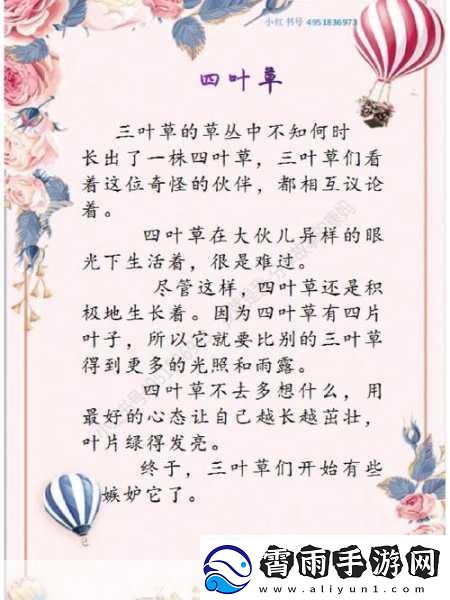 小红书号 4951836973
四叶草
三叶草的草丛中不知何时
长出了一株四叶草，三叶草们看
着这位奇怪的伙伴，都相互议论
着。
四叶草在大伙儿异样的眼
光下生活着，很是难过。
尽管这样，四叶草还是积
极地生长着。因为四叶草有四片
叶子，所以它就要比别的三叶草
得到更多的光照和雨露。
四叶草不去多想什么，用
最好的心态让自己越长越茁壮，
叶片绿得发亮。
终于，三叶草们开始有些
嫉妒它了。
霄雨手游网
www.aliyun1.com